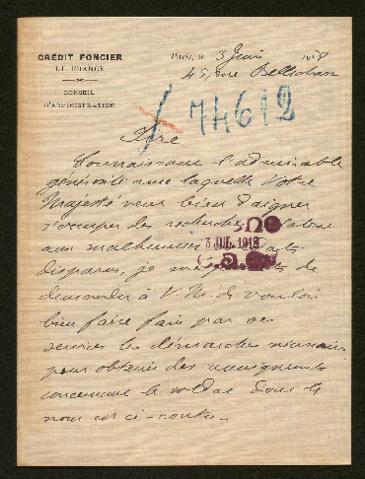 CRÉDIT FONCIER
DE FRANCE
CONSEIL
D'ADMINISTRATION
Paris, le 3 Juin 1918
45, rue Bellechasse
74612
Sire
Connaissant l'admirable
générosité avec laquelle Votre
Majesté veut bien daigner
s'occuper des recherches
aux malheureux
disparus, je me de
demander à V. M. de vouloir
bien faire faire par ses
services les démarches nécessaires
pour obtenir des renseignements
concernant le soldat dont le
nom est ci-contre.
3 JUL. 1918